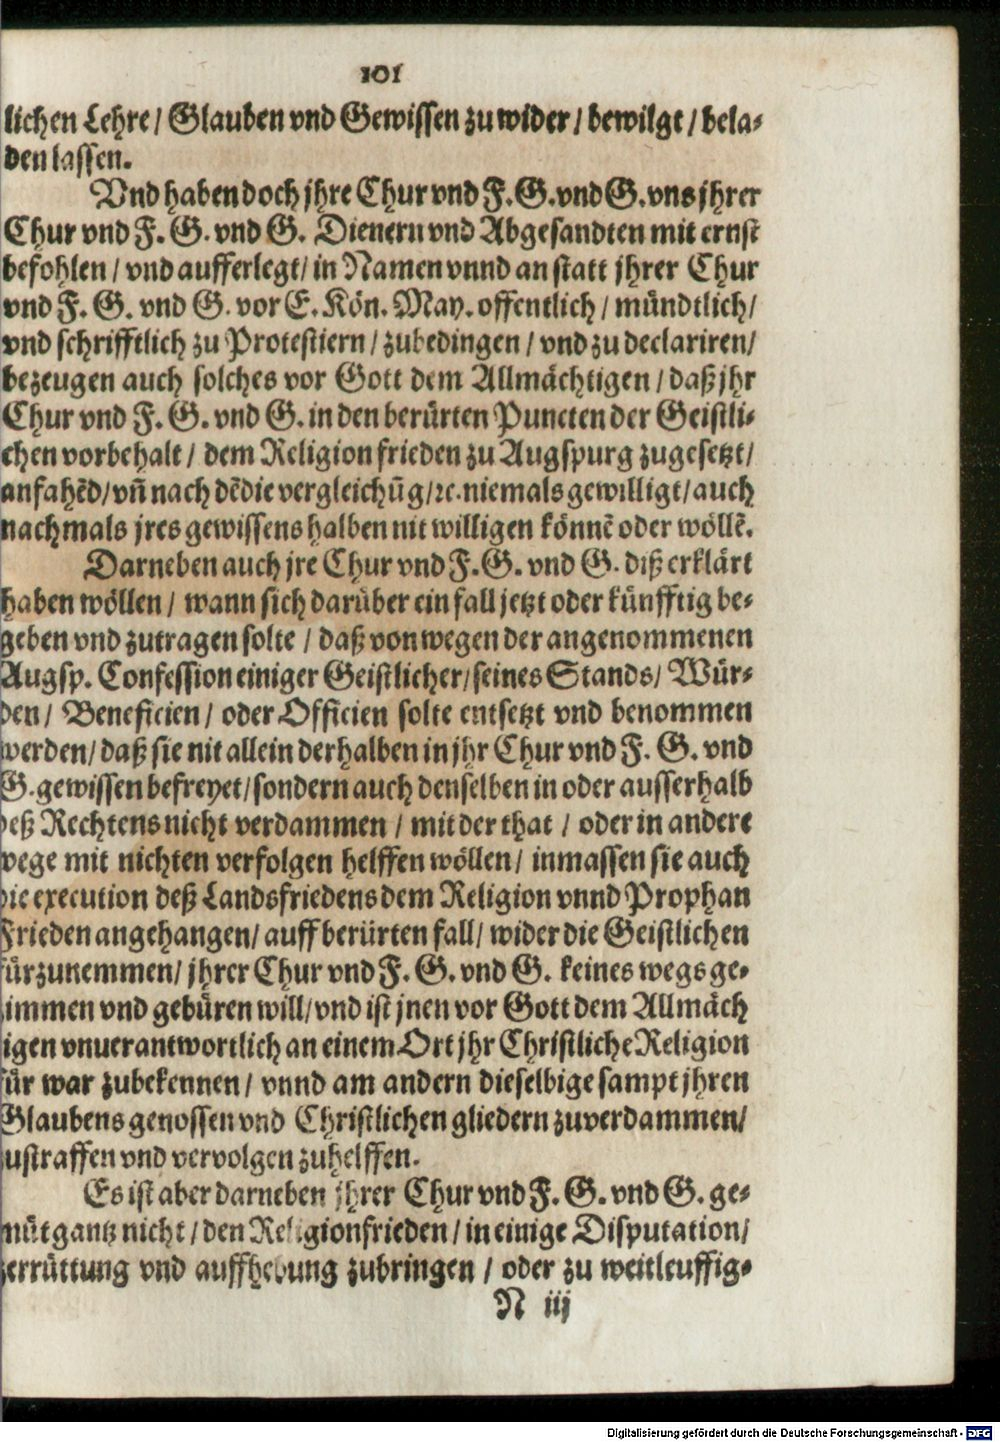 101
lichen Lehre / Glauben vnd Gewissen zu wider / bewilgt / bela-
den lassen.
Vnd haben doch jhre Chur vnd F. G. vnd G. vns jhrer
Chur vnd F. G. vnd G. Dienern vnd Abgesandten mit ernst
befohlen / vnd aufferlegt / in Namen vnnd an statt jhrer Chur
vnd F. G. vnd G. vor E. Kön. May. offentlich / mündtlich /
vnd schrifftlich zu Protestiern / zubedingen / vnd zu declariren /
bezeugen auch solches vor Gott dem Allmächtigen / daß jhr
Chur vnd F. G. vnd G. in den berürten Puncten der Geistli-
chen vorbehalt / dem Religion frieden zu Augspurg zugesetzt /
anfahẽd / vñ nach dẽ die vergleichũg / ꝛc. niemals gewilligt / auch
nachmals jres gewissens halben nit willigen könnẽ oder wöllẽ.
Darneben auch jre Chur vnd F. G. vnd G. diß erklärt
haben wöllen / wann sich darüber ein fall jetzt oder künfftig be-
geben vnd zutragen solte / daß von wegen der angenommenen
Augsp. Confession einiger Geistlicher / seines Stands / Wür-
den / Beneficien / oder Officien solte entsetzt vnd benommen
werden / daß sie nit allein derhalben in jhr Chur vnd F. G. vnd
G. gewissen befreyet / sondern auch denselben in oder ausserhalb
deß Rechtens nicht verdammen / mit der that / oder in andere
wege mit nichten verfolgen helffen wöllen / inmassen sie auch
die execution deß Landsfriedens dem Religion vnnd Prophan
Frieden angehangen / auff berürten fall / wider die Geistlichen
fürzunemmen / jhrer Chur vnd F. G. vnd G. keines wegs ge-
zimmen vnd gebüren will / vnd ist jnen vor Gott dem Allmäch
tigen vnuerantwortlich an einem Ort jhr Christliche Religion
für war zubekennen / vnnd am andern dieselbige sampt jhren
Glaubens genossen vnd Christlichen gliedern zuverdammen /
zustraffen vnd vervolgen zuhelffen.
Es ist aber darneben jhrer Chur vnd F. G. vnd G. ge-
müt gantz nicht / den Religionfrieden / in einige Disputation /
zerrüttung vnd auffhebung zubringen / oder zu weitleuffig-
N iij
Digitalisierung gefördert durch die Deutsche Forschungsgemeinschaft - DFG